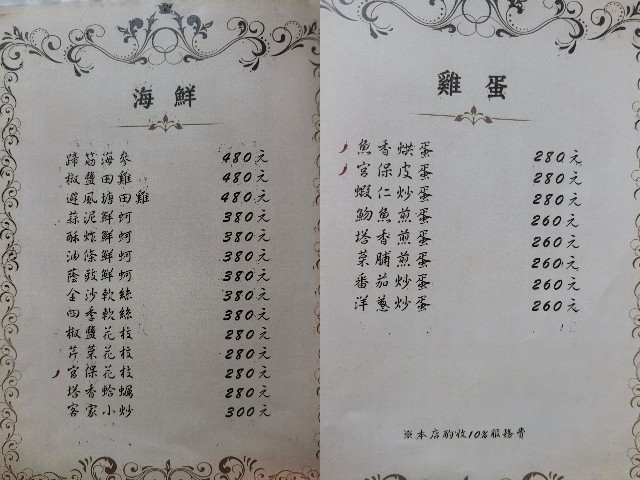 海鮮
蹄筋海參 480元
椒鹽田雞 480元
避風塘田雞 480元
蒜泥鮮蚵 380元
酥炸鮮蚵 380元
油條鮮蚵 380元
蔭豉鮮蚵 380元
金沙軟絲 380元
四季軟絲 380元
椒鹽花枝 280元
芹菜花枝 280元
宮保花枝 280元
塔香蛤蠣 280元
客家小炒 300元
雞蛋
魚香烘蛋 280元
宮保皮蛋 280元
蝦仁炒蛋 280元
魩魚煎蛋 260元
塔香煎蛋 260元
菜脯煎蛋 260元
番茄炒蛋 260元
洋蔥炒蛋 260元
※本店酌收10%服務費